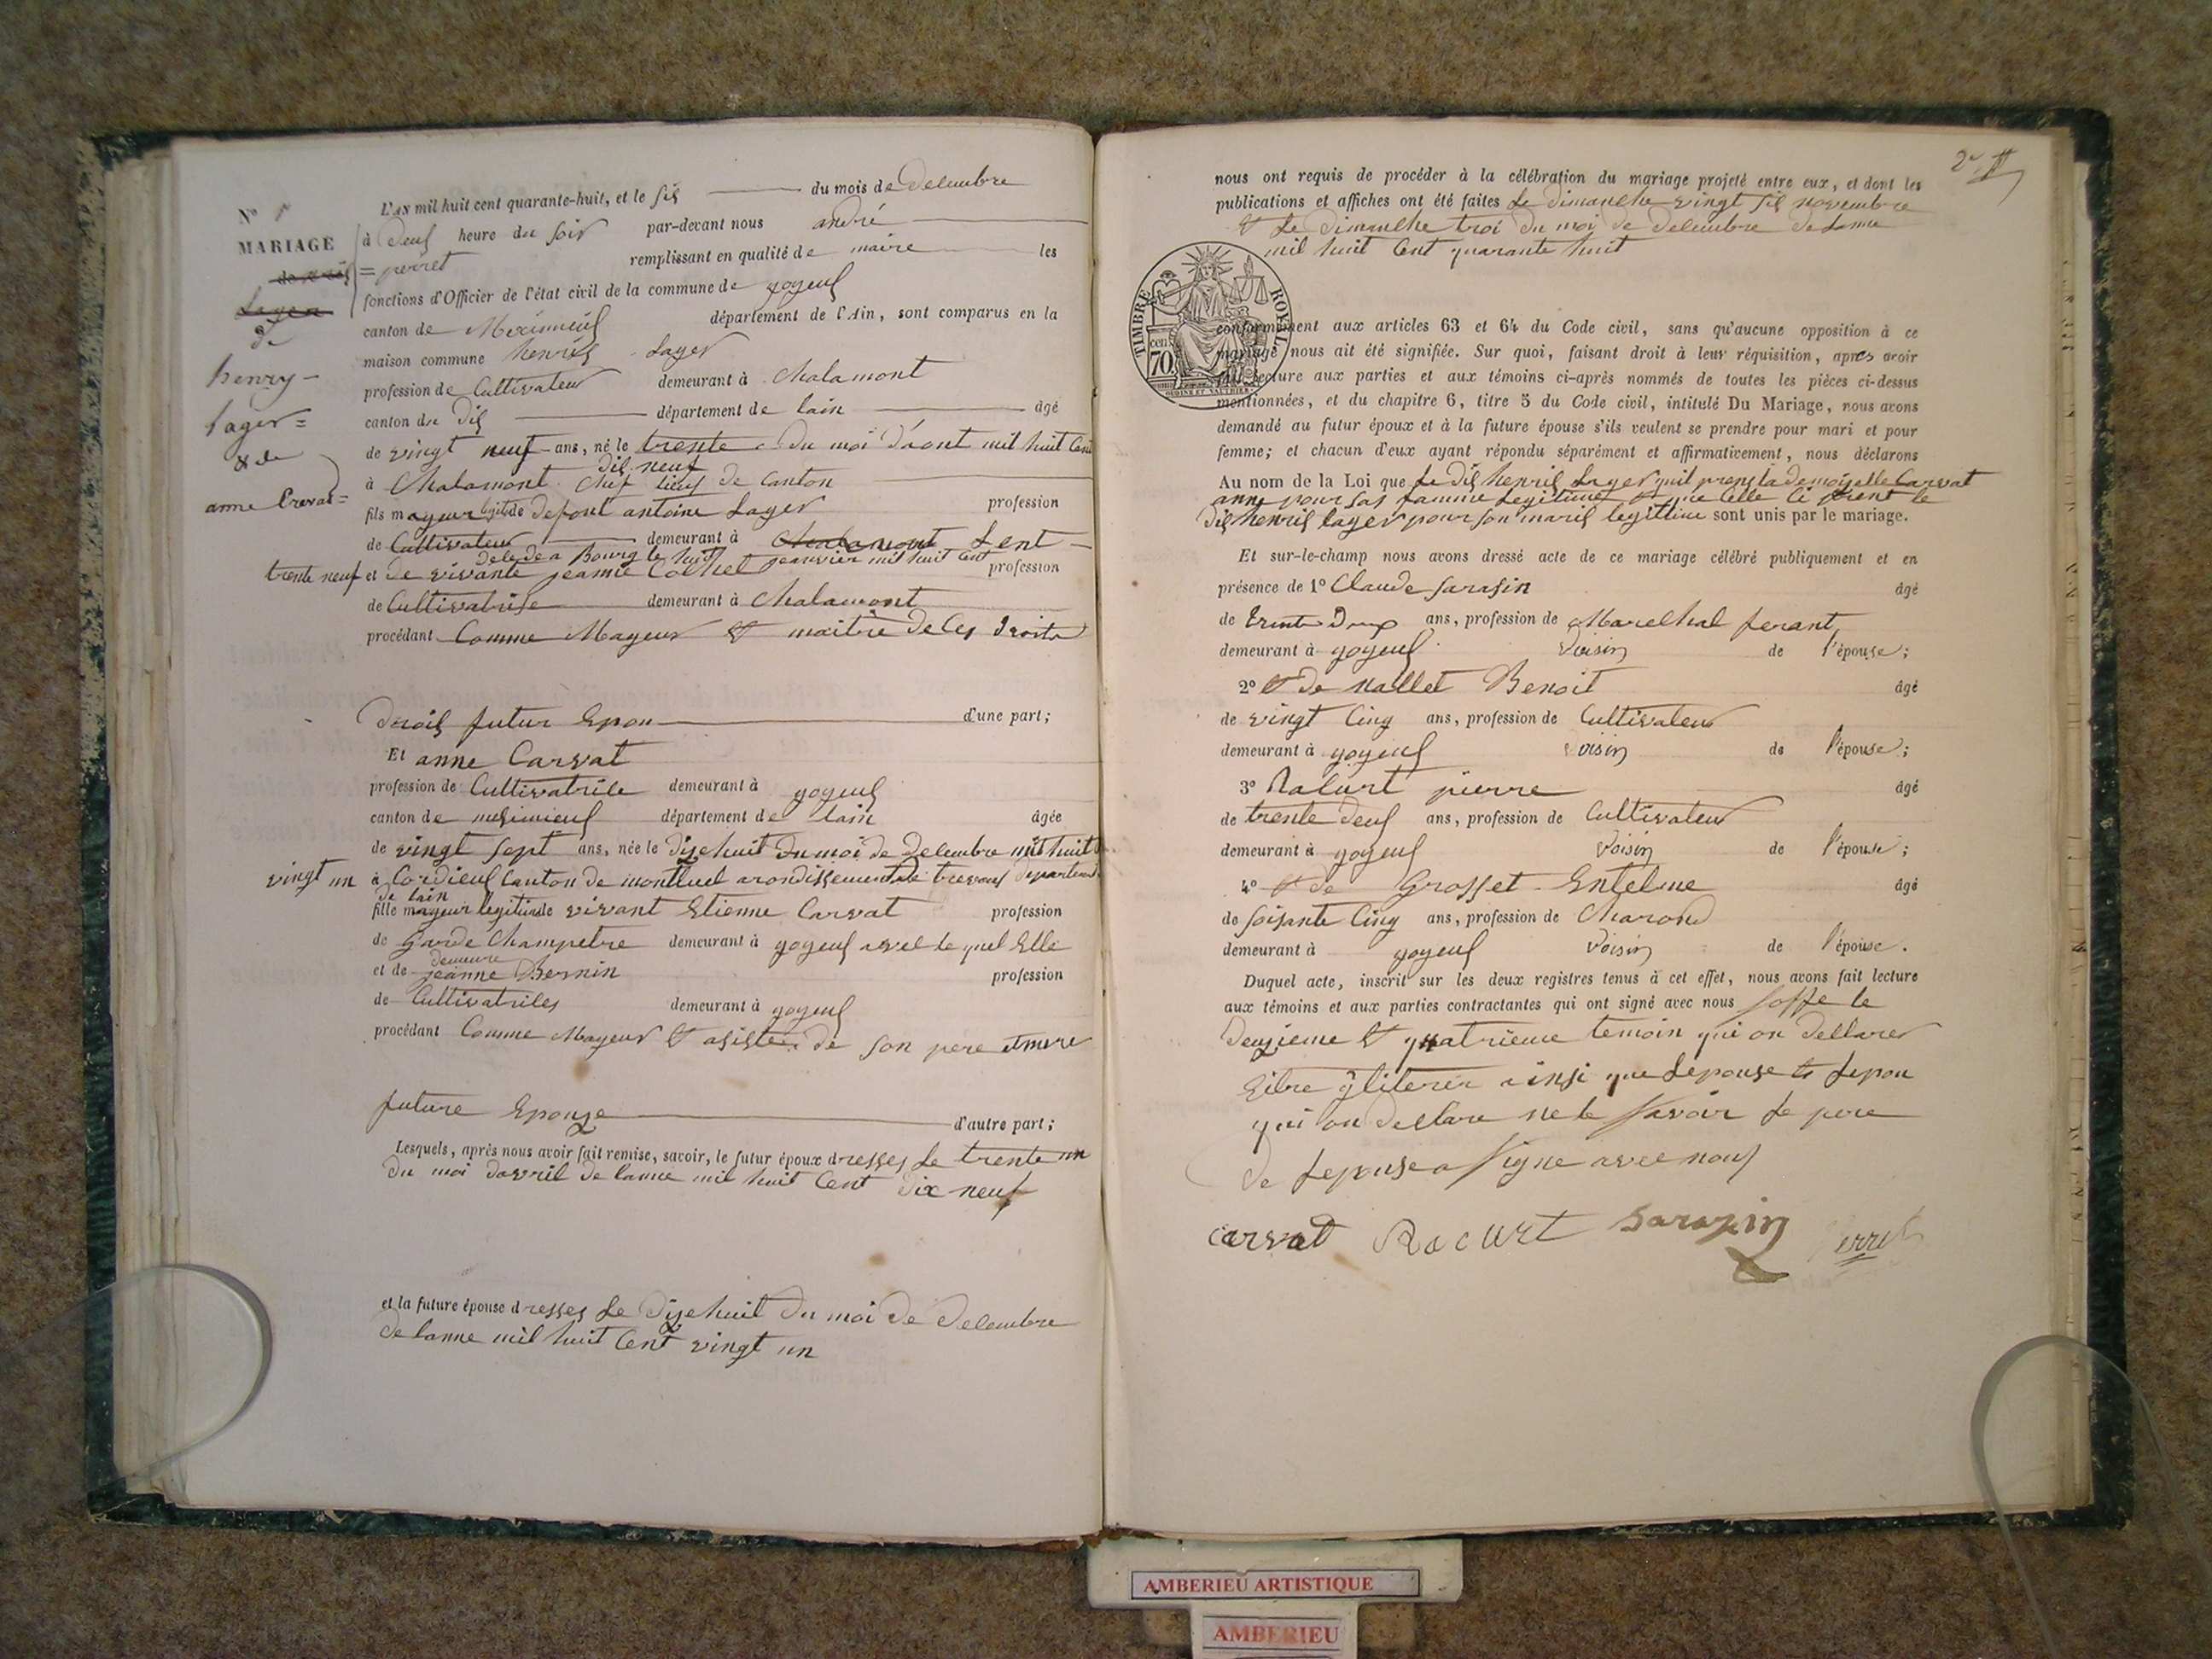 N° 1
MARIAGE
Lager
de
henry =
lager =
& de
anne Crevat =
L'AN mil huit cent quarante-huit, et le sis du mois de decembre
à deus heure du soir par-devant nous andré
= perret remplissant en qualité de maire les
fonctions d'Officier de l'état civil de la commune de joyeus
canton de Meximieus département de l'Ain, sont comparus en la
maison commune henris Lager
profession de Cultivateur demeurant à Chalamont
canton du dis département de lain âgé
de vingt neuf ans, né le trente du moi d'aout mil huit Cent
dis neuf
à Chalamont Chef lieus de Canton
fils mayeur legitide defont antoine Lager profession
de Cultivateur demeurant à Chalamont Lent
decede a Bourg le huit janvier mil huit Cent
trente neuf et de vivante jeanne Cochet profession
de Cultivatrise demeurant à Chalamont
procédant Comme Mayeur & maitre de Ces droits
drois futur Epou d'une part;
Et anne Carvat
profession de Cultivatrice demeurant à joyeus
canton de mesimieus département de lain âgée
de vingt sept ans, née le disehuit du moi de decembre mil huit C
vingt un à Cordieus Canton de montluel arondissement de trevous departement
de lain
fille mayeur legitimde vivant Etienne Carvat profession
de garde Champetre demeurant à joyeus avec le quel Elle
demeure
et de jeanne Bernin profession
de Cultivatrices demeurant à joyeus
procédant Comme Mayeur & asistée de son pere et mere
future Epouze d'autre part;
Lesquels, après nous avoir fait remise, savoir, le futur époux dresses Le trente un
du moi davril de lanne mil huit Cent dix neuf
et la future épouse dresses Le disehuit du moi de decembre
de lanne mil huit Cent vingt un
2e
nous ont requis de procéder à la célébration du mariage projeté entre eux, et dont les
publications et affiches ont été faites Le dimanche vingt sis novembre
& Le dimanche troi du moi de decembre de Lanne
mil huit Cent quarante huit
TIMBRE ROYAL
70 cen
OUDINE ET VAUTHIER
conformément aux articles 63 et 64 du Code civil, sans qu'aucune opposition à ce
mariage nous ait été signifiée. Sur quoi, faisant droit à leur réquisition, après avoir
fait lecture aux parties et aux témoins ci-après nommés de toutes les pièces ci-dessus
mentionnées, et du chapitre 6, titre 5 du Code civil, intitulé Du Mariage, nous avons
demandé au futur époux et à la future épouse s'ils veulent se prendre pour mari et pour
femme; et chacun d'eux ayant répondu séparément et affirmativement, nous déclarons
Au nom de la Loi que Le dis henris Lager quil prens la demoiselle Carvat
anne pour sas famme Legitime & que Celle Ci prent le
dis henris lager pour son maris legittime sont unis par le mariage.
Et sur-le-champ nous avons dressé acte de ce mariage célébré publiquement et en
présence de 1° Claude Sarasin âgé
de trente Deux ans, profession de Marechal ferant
demeurant à joyeus Voisin de l'épouse;
2° & de nallet Benoit âgé
de vingt Cinq ans, profession de Cultivateur
demeurant à joyeus voisin de l'épouse;
3° Racurt pierre âgé
de trente deus ans, profession de Cultivateur
demeurant à joyeus Voisin de l'épouse;
4° & de Grosset Entelme âgé
de soisante Cinq ans, profession de Charond
demeurant à joyeus Voisin de l'épouse.
Duquel acte, inscrit sur les deux registres tenus à cet effet, nous avons fait lecture
aux témoins et aux parties contractantes qui ont signé avec nous soffe le
deuzieme & quatrieme temoin qui on declarer
Eitre yliterer ainsi que Lepouse & Lepou
qui on declare ne le savoir Le pere
de Lepouse a signe avec nous
Carvat Racurt Sarazin Perret
AMBERIEU ARTISTIQUE
AMBERIEU